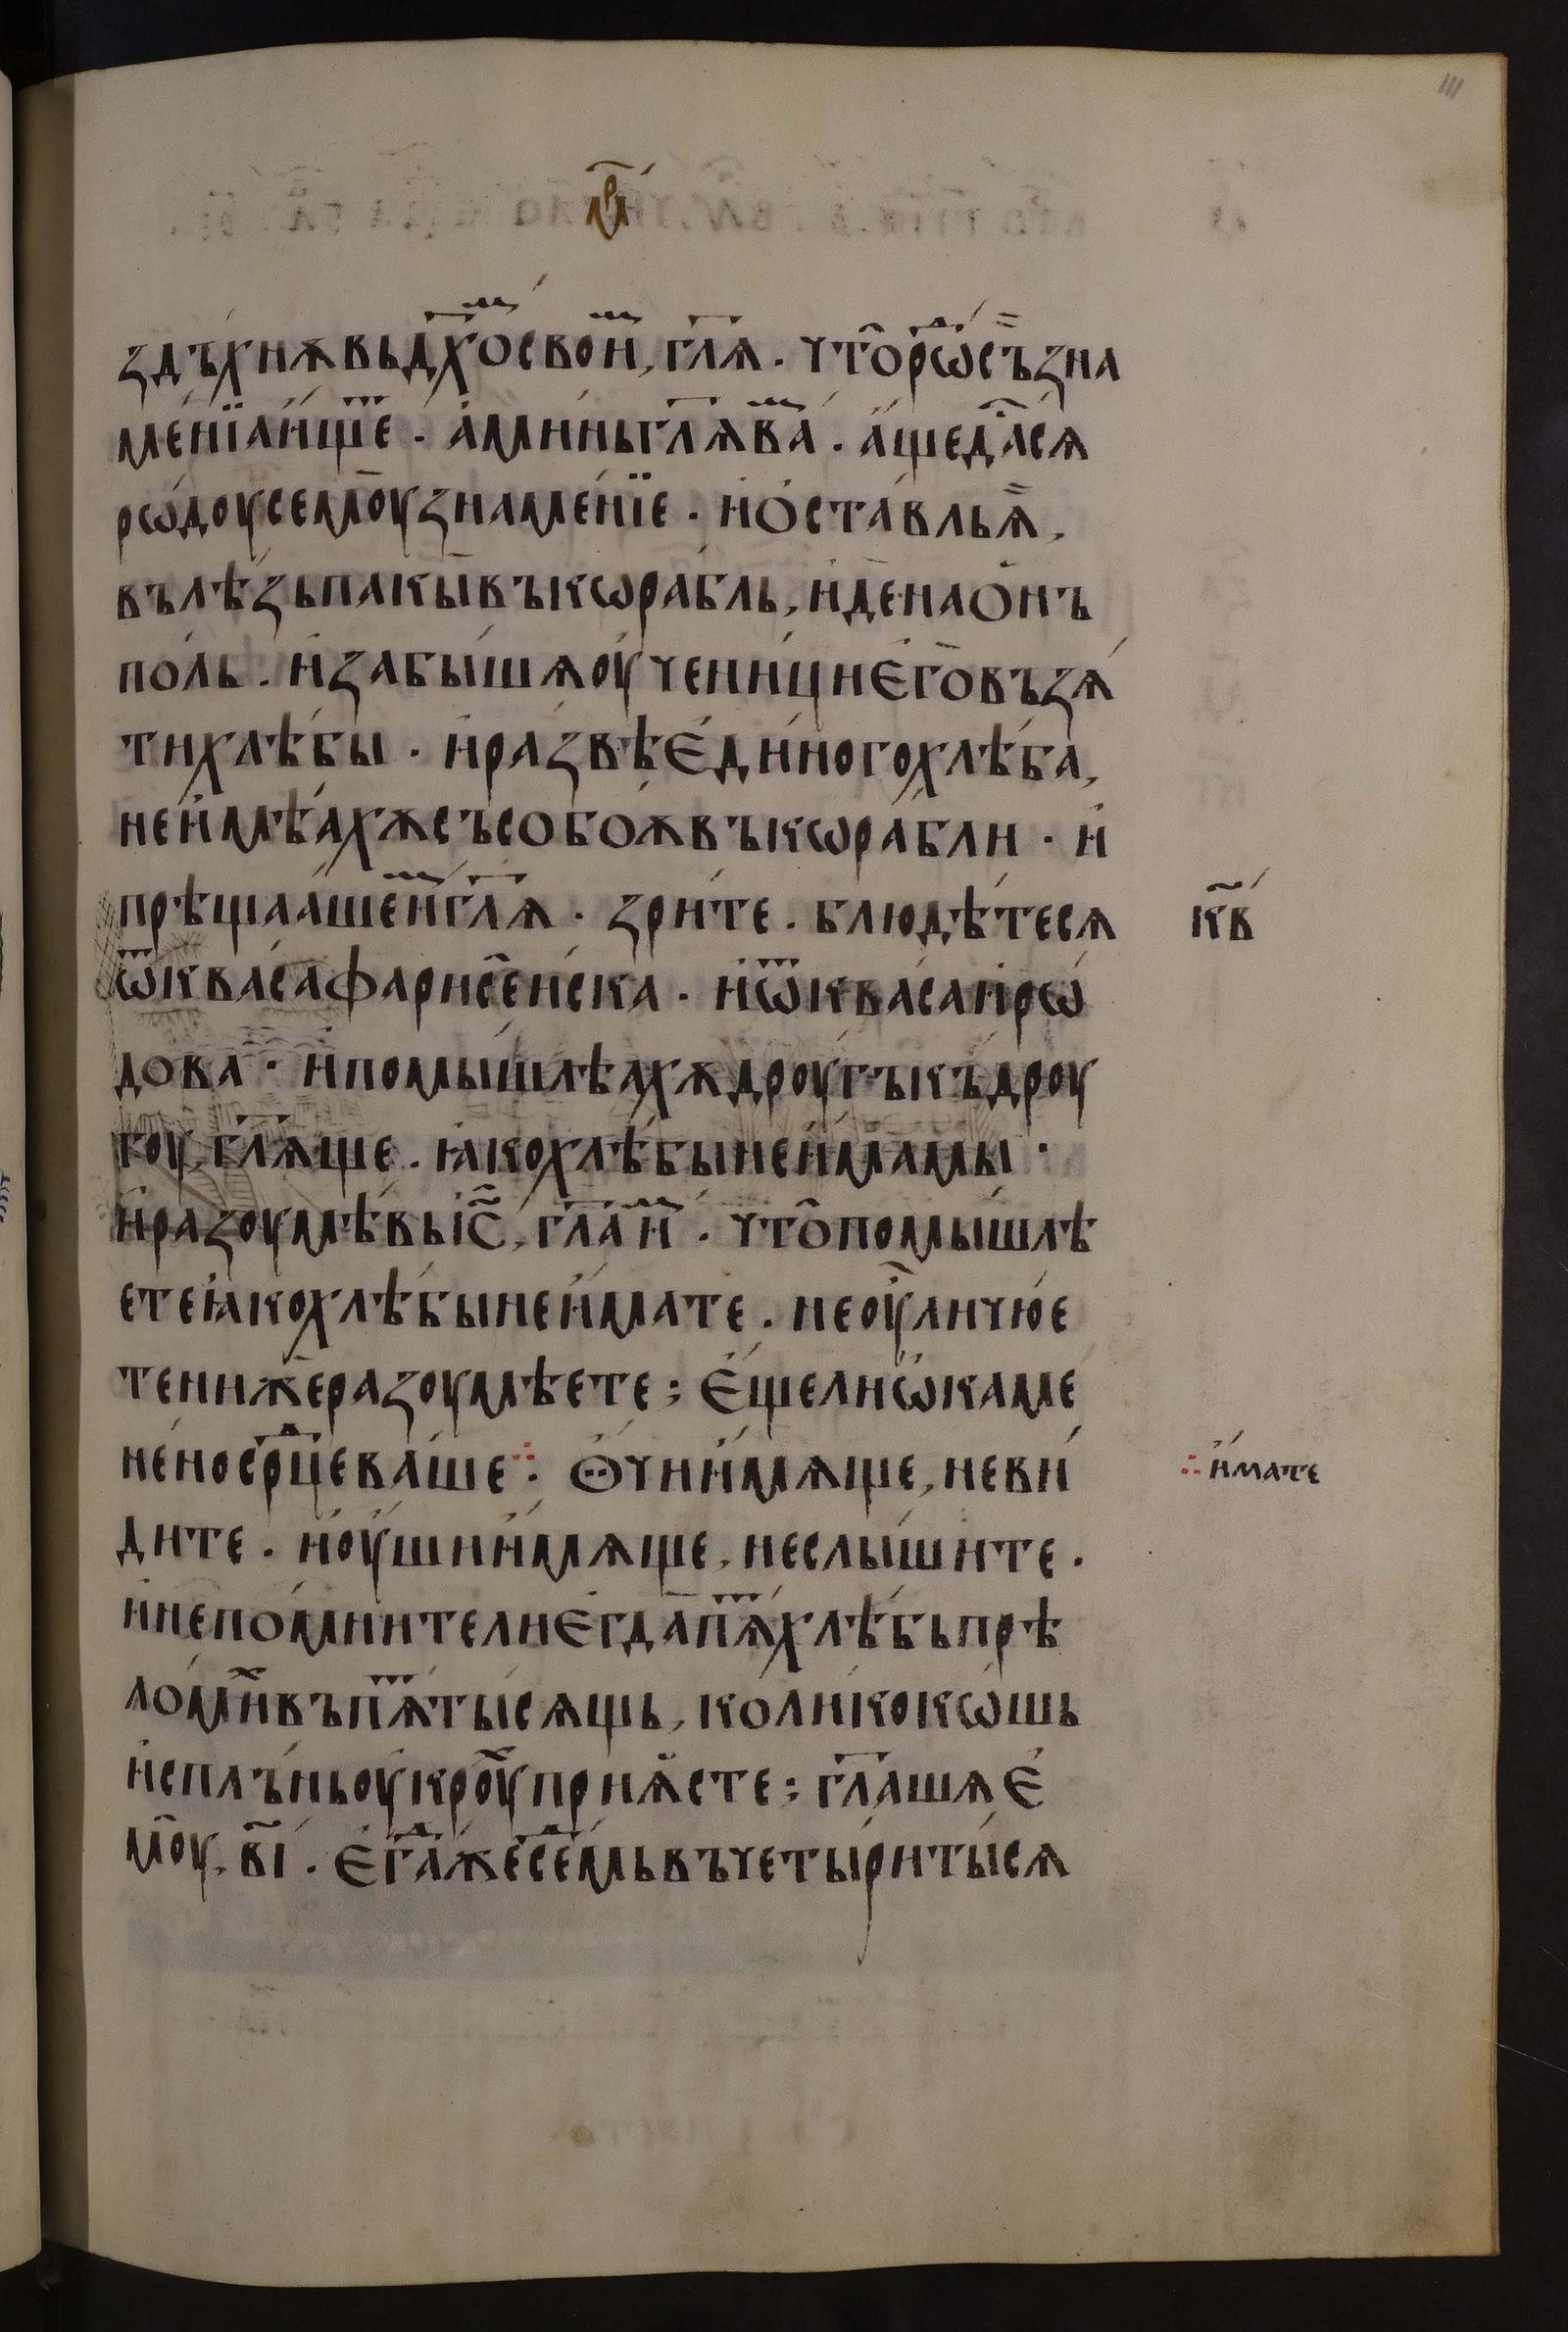 мр҃
здъ́хнѫвь дх҃о́мсвои́м, гл҃ѧ. что̑ рѡ́дсъ зна
ме́нїа и́щеⷮ. а҆ми́нь гл҃ѧ ва́мⷨ. а҆́ще да́стсѧ
рѡ́доу семоу̀ знаме́нїе. и҆ ѻ҆ста́вль ѧ҆̀,
вълѣ́зь пакы̀ въ кѡра́бль, и҆́де на ѻ҆́нъ
по́ль. и҆ забы́шѧ оу҆чени́ци є҆го̀ възѧ́
ти хлѣ́бы. и҆ ра́звѣ є҆ди́ного хлѣ́ба,
не и҆мѣ́ахѫ съ собоѫ̀ въ кѡра́бли. и҆
прѣща́аше и҆́мⷨ гл҃ѧ. зри́те. блюдѣ́тесѧ
кв҃
ѿ ква́са фарисе́иска. и҆ ѿ ква́са и҆рѡ́
дова. и҆ помышлѣ́ахѫ дроу́гъ къ дроу́
гоу, гл҃ѧ́ще. ꙗ҆́ко хлѣ́бы не и҆́мамы.
и҆ разоумѣ́вь і҆с҃, гл҃а и҆́мⷨ. что̑ помышлѣ́
ете ꙗ҆́ко хлѣ́бы не и҆́мате. не оу҆̀ ли чю́е
те ни́же разоумѣ́ете; є҆ще́ ли ѡ҆каме
не́но срⷣце ва́ше ⁘ Ѻ҆́чи и҆мѧ́ще, не ви́
⁘ и҆́мате
дите. и҆ оу҆́ши и҆мѧ́ще, не слы́шите.
и҆ не по́мните ли є҆гда̀ пѧⷮ хлѣ́бь прѣ
ло́миⷯ въ пѧⷮ ты́сѧщь, ко́лико кѡ́шь
и҆спль́нь оу҆кроу́хⷯ прїѧ́сте; гл҃а́шѧ є҆
моу̑, в҃і. є҆гⷣа́же се́дⷣмь въ четы́ри ты́сѧ